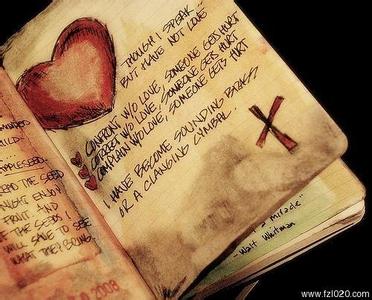 THOUGH I SPEAK
BUT HAVE NOT LOVE
CONFRONT W/O LOVE, SOMEONE GETS HURT
CORRECT W/O LOVE, SOMEONE GETS HURT
COMPLAIN W/O LOVE, SOMEONE GETS HURT
I HAVE BECOME SOUNDING BRASS
OR A CLANGING CYMBAL.
THE SEED
ENJOY
FRUIT AND
THE SEEDS
WILL SAVE TO SEE
WHAT THEY BRING.
2008
a miracle"
-Walt Whitman
www.fzl020.com